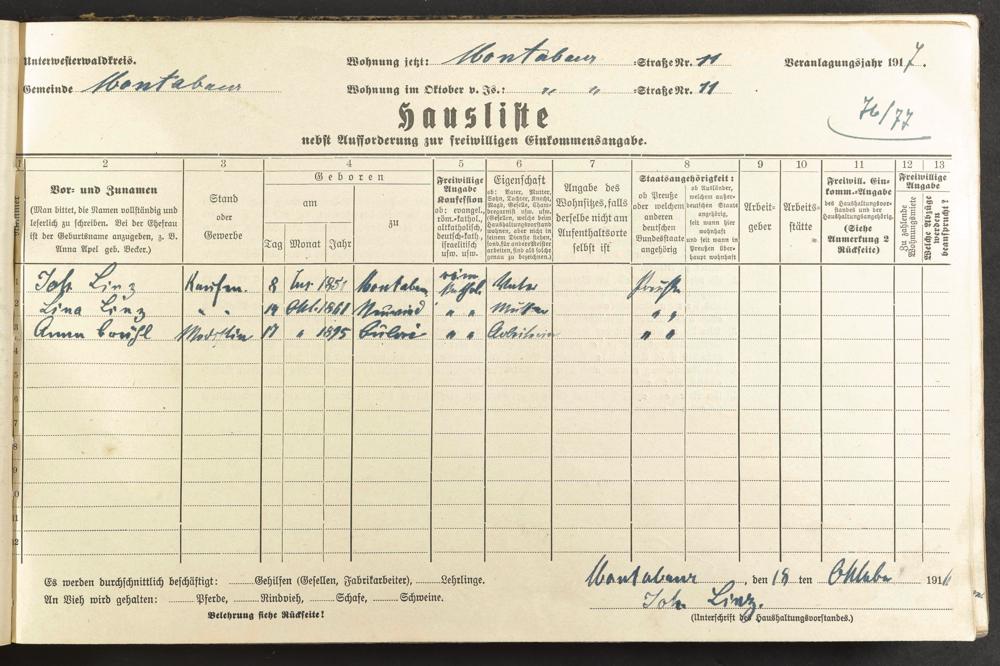 Unterwesterwaldkreis. Wohnung jetzt: Montabaur =Straße Nr. 11 Veranlagungsjahr 1917.
Gemeinde Montabaur Wohnung im Oktober v. Js.: " " =Straße Nr. 11
76/77
Hausliste
nebst Aufforderung zur freiwilligen Einkommensangabe.
1 2 3 4 5 6 7 8 9 10 11 12 13
Nummer
Vor- und Zunamen
(Man bittet, die Namen vollständig und
leserlich zu schreiben. Bei der Ehefrau
ist der Geburtsname anzugeben, z. B.
Anna Apel geb. Becker.)
Stand
oder
Gewerbe
Geboren
am
Tag Monat Jahr
zu
Freiwillige
Angabe
Konfession
ob: evangel.,
röm.-kathol.,
altkatholisch,
deutsch-kath.,
israelitisch
usw. usw.
Eigenschaft
ob: Vater, Mutter,
Sohn, Tochter, Knecht,
Magd, Geselle, Cham-
bregarnist usw. usw.
(Gesellen, welche beim
Haushaltungsvorstand
wohnen, aber nicht in
seinem Dienste stehen,
sond. für andere Meister
arbeiten, sind als solche
genau zu bezeichnen.)
Angabe des
Wohnsitzes, falls
derselbe nicht am
Aufenthaltsorte
selbst ist
Staatsangehörigkeit:
ob Preuße
oder welchem
anderen
deutschen
Bundesstaate
angehörig
ob Ausländer,
welchem außer-
deutschen Staate
angehörig,
seit wann hier
wohnhaft
und seit wann in
Preußen über-
haupt wohnhaft
Arbeit-
geber
Arbeits-
stätte
Freiwill. Ein-
komm.-Angabe
des Haushaltungsvor-
standes und der
Haushaltungsangehörig.
(Siehe
Anmerkung 2
Rückseite)
Freiwillige
Angabe
Zu zahlende
Wohnungsmiete
Welche Abzüge
werden
beansprucht?
1 Joh. Linz Kaufm. 8 1851 Montabaur röm. kathol. Vater Preuße
2 Lina Linz " " 14 Okt. 1861 Neuwied " " Mutter " "
3 Anna Brühl Modistin 17 " 1895 " " Arbeiterin " "
4
5
6
7
8
9
10
11
12
Es werden durchschnittlich beschäftigt: Gehilfen (Gesellen, Fabrikarbeiter), Lehrlinge.
An Vieh wird gehalten: Pferde, Rindvieh, Schafe, Schweine.
Belehrung siehe Rückseite!
Montabaur, den 18 ten Oktober 1916
Joh. Linz.
(Unterschrift des Haushaltungsvorstandes.)